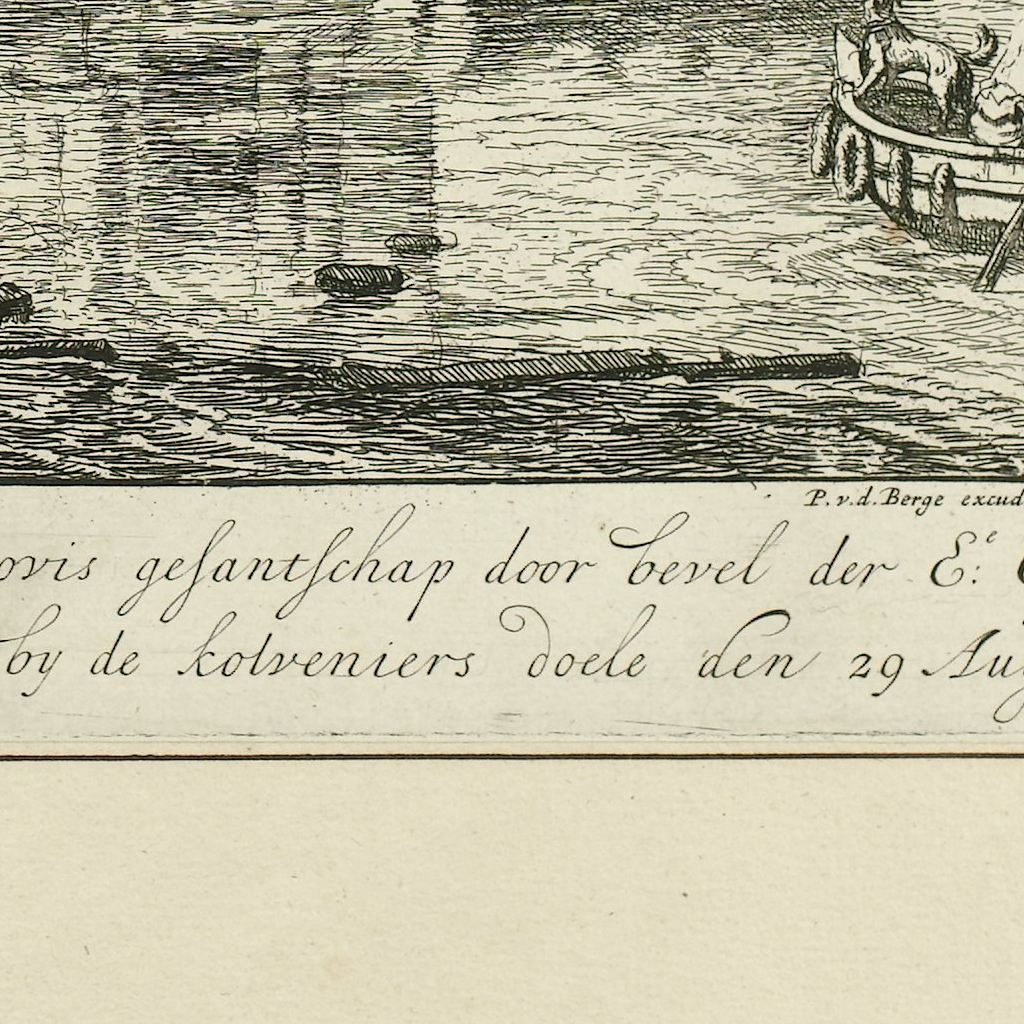 P. v. d. Berge excud
ovis geſantſchap door bevel der E:ͤ
by de kolveniers doele den 29 Aug